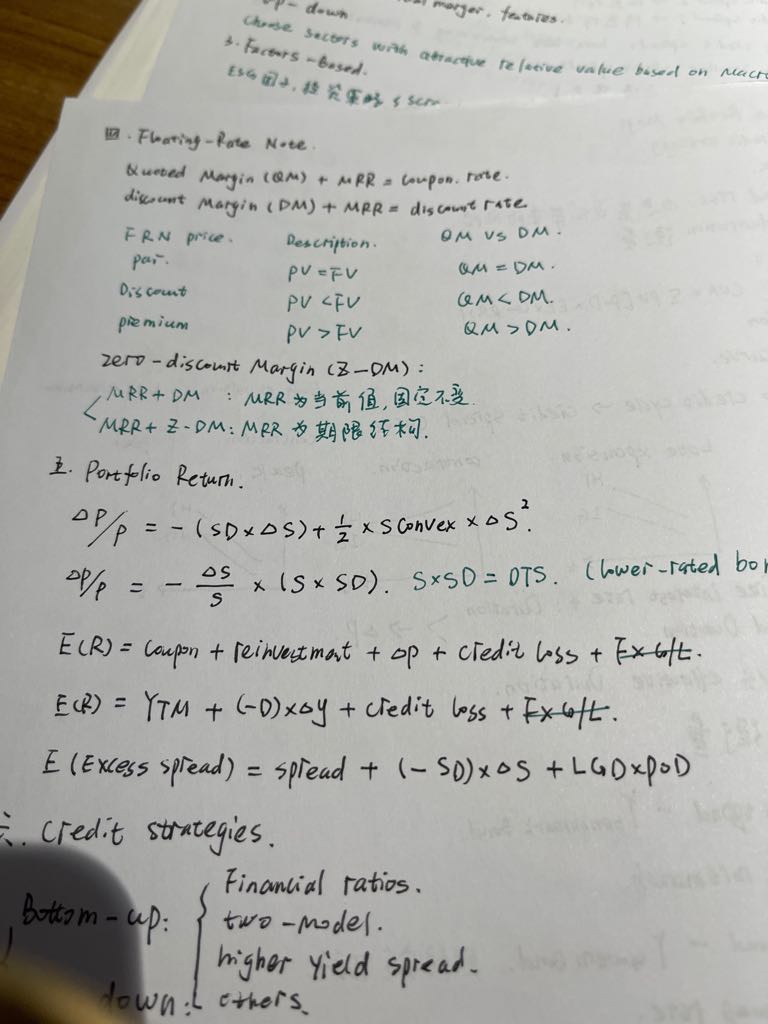 down
features.
Choose sectors with attractive relative value based on Macro
3. Factors-Based.
ESG
四. Floating-Rate Note.
Quoted Margin (QM) + MRR = coupon. rate.
discount Margin (DM) + MRR = discount rate.
FRN price. Description. QM VS DM.
par. PV = FV QM = DM.
Discount PV < FV QM < DM.
premium PV > FV QM > DM.
zero-discount Margin (Z-DM):
MRR + DM : MRR为当前值, 固定不变.
MRR + Z-DM: MRR 为期限结构.
五. Portfolio Return.
ΔP/P = - (SD × ΔS) + 1/2 × SConvex × ΔS².
ΔP/P = - ΔS/S × (S × SD). S×SD = DTS. (lower-rated bo
E(R) = coupon + reinvestment + ΔP + credit loss + FX G/L.
E(R) = YTM + (-D)×Δy + credit loss + FX G/L.
E (Excess spread) = spread + (-SD)×ΔS + LGD×POD
六. Credit strategies.
Bottom-up: Financial ratios.
two-model.
higher yield spread.
down: others.